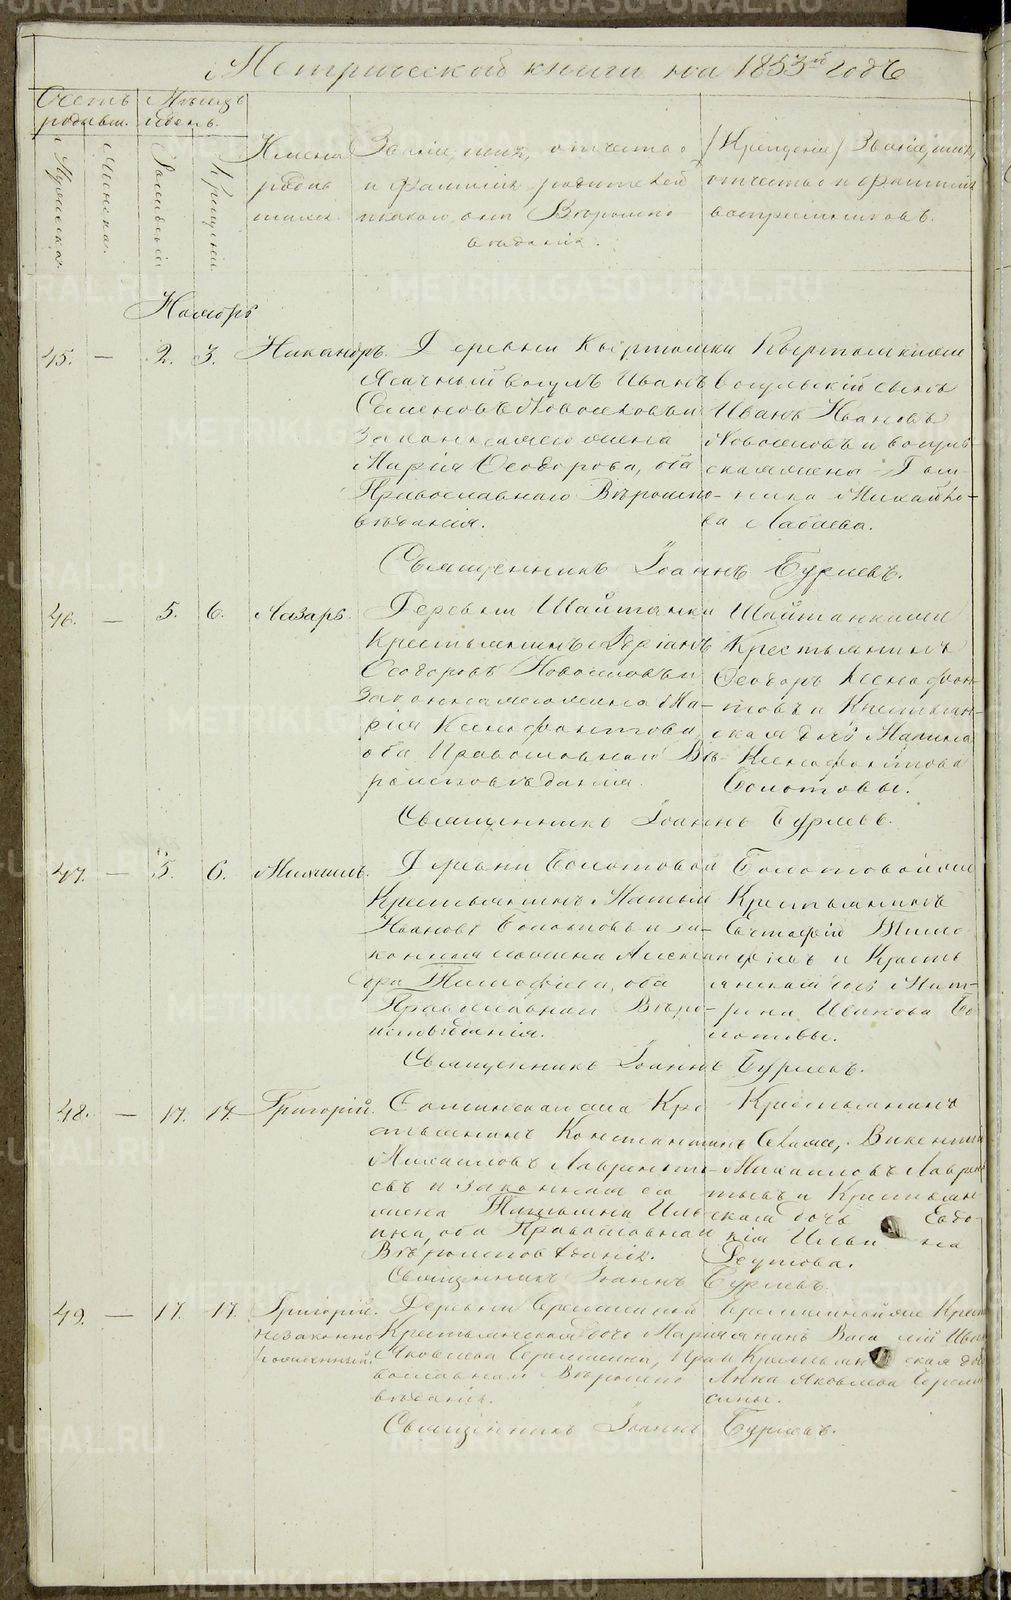 Метрической книги на 1853й годъ
Счетъ родивш.
Мѣсяцъ и день.
Мужеска.
Женска.
Рожденія
Крещенія.
Имена родившихся.
Званіе, имя, отчество
и фамилія родителей
и какого они Вѣроиспо-
вѣданія.
Званіе, имя,
отчество и фамилія
воспріемниковъ.
Ноябрь
45. — 2. 3. Никаноръ.
Деревни Кыртомки
Ясачный вогулъ Иванъ
Семеновъ Новоселовъ и
законная его жена
Марія Ѳеодорова, оба
Православнаго Вѣроиспо-
вѣданія.
Кыртомкиже
вогульскій сынъ
Иванъ Ивановъ
Новоселовъ и вогуль
ская жена
Михайло-
ва Лабаева.
Священникъ Іоаннъ Бурлевъ.
46. — 5. 6. Лазарь.
Деревни Шайтанки
Крестьянинъ
Ѳеодоровъ Новоселовъ и
законная его жена Ма-
рія Ксенофонтова
оба Православнаго Вѣ-
роисповѣданія.
Шайтанкиже
Крестьянинъ
Ѳеодоръ Ксенофон-
товъ и Крестьян-
ская дочь
Ксенофонтова
Болотовы.
Священникъ Іоаннъ Бурлевъ.
47. — 5. 6. Михаилъ.
Деревни Болотовой
Крестьянинъ
Ивановъ Болотовъ и за-
конная его жена Алексан
дра Тимофеева, оба
Православнаго Вѣро-
исповѣданія.
Болотовойже
Крестьянинъ
Евстафій Тимо
фіевъ и Кресть
янская дочь Мат-
рина Иванова Бо
лотовы.
Священникъ Іоаннъ Бурлевъ.
48. — 17. 17. Григорій.
Кре
стьянинъ Константинъ
Михаиловъ Лавренть-
евъ и законная его
жена Татьяна Иль
ина, оба Православнаго
Вѣроисповѣданія.
Крестьянинъ
Селаже, Викентій
Михаиловъ Лаврен
тьевъ и Крестьян
ская дочь Евдо-
кія Ильина
Реутова.
Священникъ Іоаннъ Бурлевъ.
49. — 17. 17. Григорій.
незаконно
рожденный.
Деревни Черемшиной
Крестьянская дочь Марія
Яковлева Черемшина, Пра
вославнаго Вѣроиспо
вѣданія.
Черемшинойже Крест
янинъ Василій Иван
и Крестьянская до
Анна Яковлева Черем
шины.
Священникъ Іоаннъ Бурлевъ.
METRIKI.GASO-URAL.RU